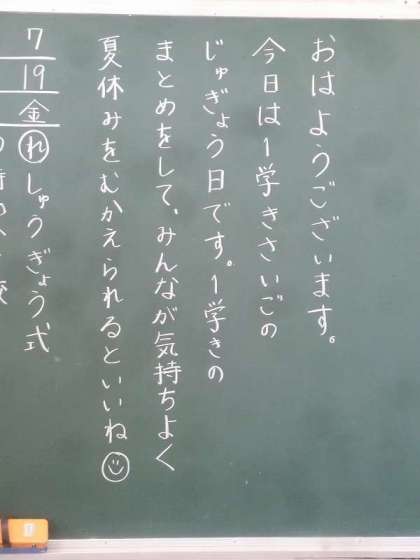 おはようございます。
今日は1学きさいごの
じゅぎょう日です。1学きの
まとめをして、みんなが気持ちよく
夏休みをむかえられるといいね
7
19
金
れ しゅうぎょう式